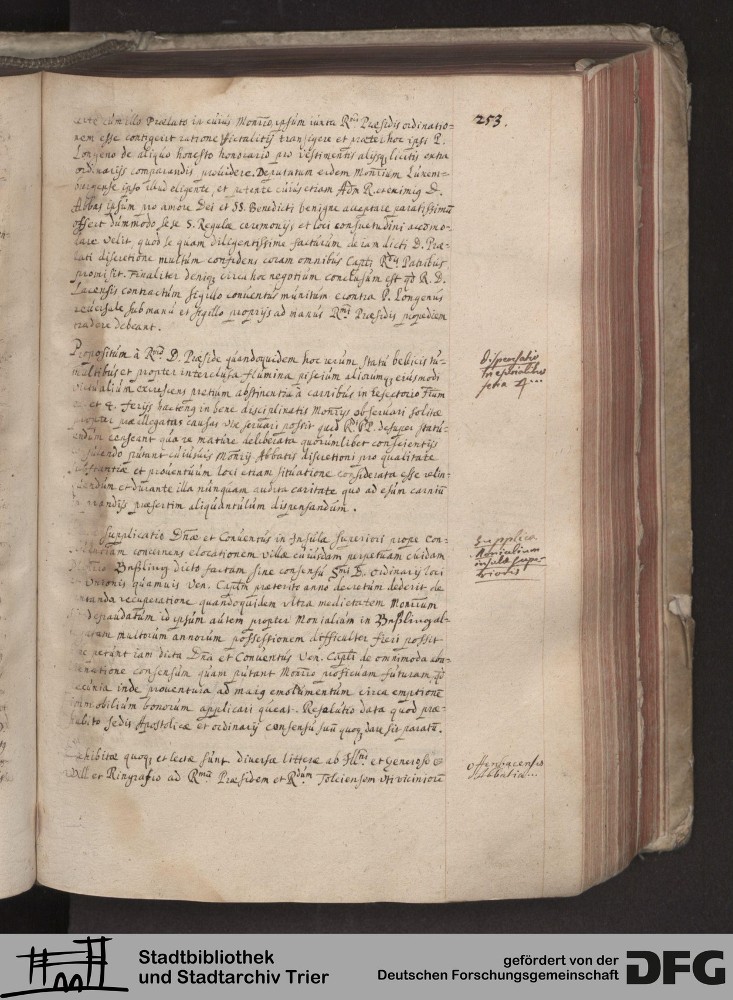 253.
cum illo Prælato in cuius Monrio, ipsum iuxta Rmi Præsidis ordinatio=
nem esse contigerit ratione transigere et præter hoc ipsi P.
Longeno de aliquo honesto honorario pro vestimentis alijsq licitis extra
ordinarijs comparandis providere. Deputatum eidem Monrium Luxem=
burgense ipso illud eligente, et petente cuius etiam Adm Reverend9 D.
Abbas ipsum pro amore Dei et SS. Benedicti benigne acceptare paratissimū
offert dummodo sese S. Regulæ ceremonijs et loci consuetudini accomo=
dare velit, quod se quam diligentissime facturum de iam dicti D. Præ=
lati discretione multum confidens coram omnibus Capti Rdis Patribus
promisit. Finaliter deniq circa hoc negotium conclusum est qd R. D.
Lacensis contractum sigillo conventus munitum e contra P. Longenus
reversale sub manu et sigillo proprijs ad manus Rmi Præsidis propediem
tradere debeant.
Propositum à Rmo D. Præside quandoquidem hoc rerum statu bellicis tu=
multibus et propter interclusa flumina piscium aliorumq eiusmodi
victualium excrescens pretium abstinentia à carnibus in refectorio
et 4. ferijs hactenq in bene disciplinatis Monrijs observari solita
propter præallegatas causas observari possit quid Rdi PP. desuper statu=
endum censeant qua re mature deliberata quorumlibet conscientijs
putant cuiusvis Monrij Abbatis discretioni pro qualitate
et proventuum loci etiam situatione considerata esse relin=
quendum et durante illa nunquam audita caritate quo ad esum carniū
præsertim aliquantulum dispensandum.
Supplicatio Dnæ et Conventus in Insula superiori prope Con=
concernens elocationem villæ cuiusdam perpetuam cuidam
dicto factam sine consensu D. ordinarij loci
quamvis Ven. Captm præterito anno decretum dederit de
recuperatione quandoquidem ultra medietatem Monrium
id ipsum autem propter Monialium in
multorum annorum possessionem difficulter fieri possit
petunt iam dicta Dna et Conventus Ven. Capti de omnimoda
consensum quam putant Monrio proficuam futuram
pecunia inde proventura ad maig emolumentum circa emptionē
immobilium bonorum applicari queat. Resolutio data quod præ=
habito sedis Apostolicæ et ordinarij consensu suū quoq dare sit paratū.
Exhibitæ quoq et lectæ sunt diversæ litteræ ab Illmi et Generosi
et Ringravio ad Rmū Præsidem et Rdum Tolciensem uti viciniorē
Dispensatio
feria 4...
Supplica
Monialium
insulæ supe=
rioris
Abbatia...
Stadtbibliothek
und Stadtarchiv Trier
gefördert von der
Deutschen Forschungsgemeinschaft
DFG